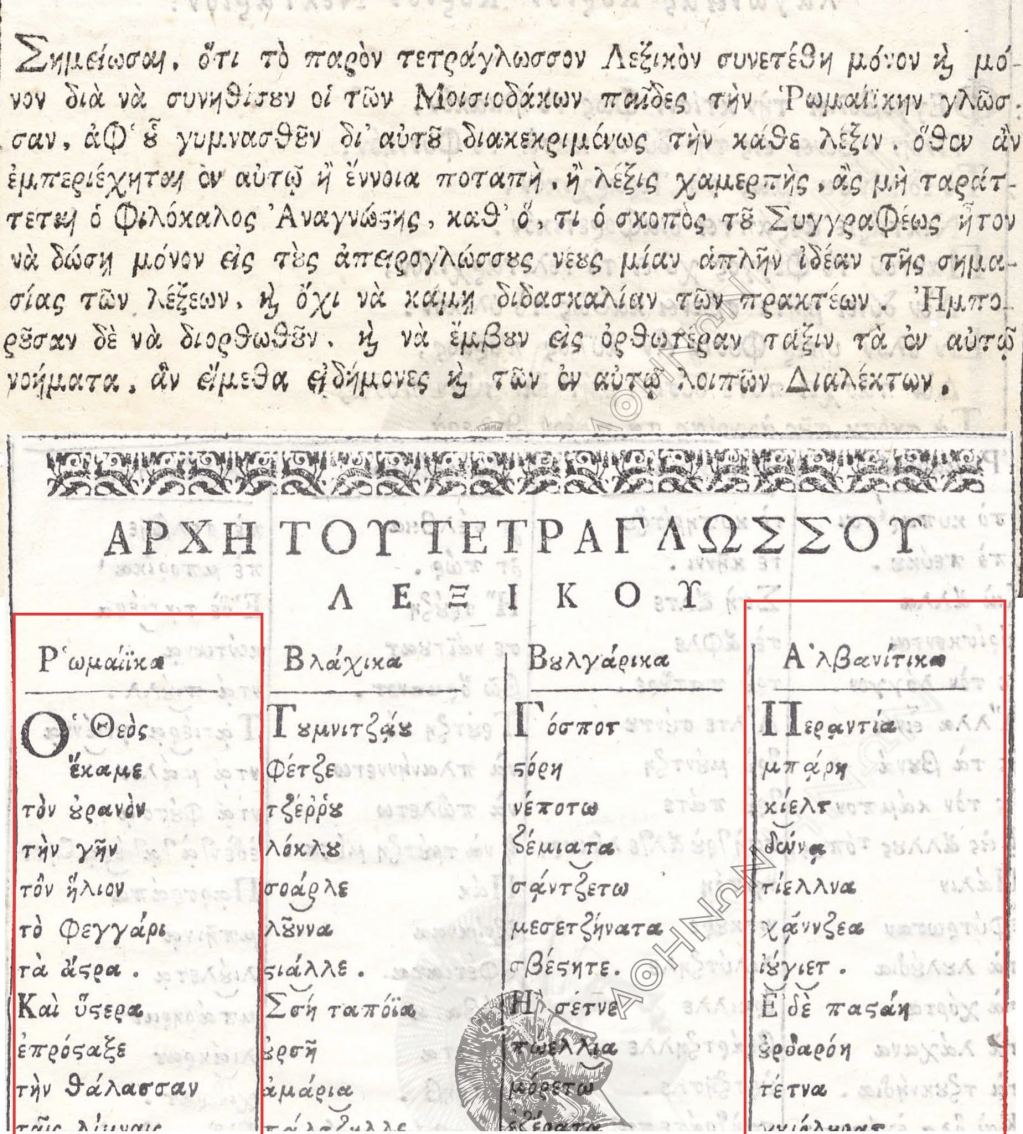 Σημείωσαι, ὅτι τὸ παρὸν τετράγλωσσον Λεξικὸν συνετέθη μόνον ϗ μό-
νον διὰ νὰ συνηθίσȣν οἱ τῶν Μοισιοδάκων παῖδες τὴν Ῥωμαΐϊκην γλῶσ-
σαν, ἀφ' ȣ̔͂ γυμνασθȣ͂ν δι' αὐτȣ͂ διακεκριμένως τὴν κάθε λέξιν. ὅθεν ἂν
ἐμπεριέχηται ἐν αὐτῷ ἢ ἔννοια ποταπὴ, ἢ λέξις χαμερπὴς, ἂς μὴ ταράτ-
τεται ὁ Φιλόκαλος Ἀναγνώϛης, καθ' ὅ, τι ὁ σκοπὸς τȣ͂ Συγγραφέως ἦτον
νὰ δώσῃ μόνον εἰς τȣ̀ς ἀπειρογλώσσȣς νέȣς μίαν ἁπλῆν ἰδέαν τῆς σημα-
σίας τῶν λέξεων, ϗ ὄχι νὰ κάμῃ διδασκαλίαν τῶν πρακτέων Ἠμπο-
ρȣ͂σαν δὲ νὰ διορθωθȣ͂ν, ϗ νὰ ἔμβȣν εἰς ὀρθωτέραν τάξιν τὰ ἐν αὐτῷ
νοήματα, ἂν εἴμεθα εἰδήμονες ϗ τῶν ἐν αὐτῷ λοιπῶν Διαλέκτων.
ΑΡΧΗ ΤΟΥ ΤΕΤΡΑΓΛΩΣΣΟΥ
ΛΕΞΙΚΟΥ
Ῥωμαΐϊκα Βλάχικα Βȣλγάρικα Ἀλβανίτικα
Ὁ Θεὸς Τȣμνιτζάȣ Γόσποτ Περαντία
ἔκαμε Φέτζε ϛόρη μπάρη
τὸν ȣ̓ρανὸν τζέρρȣ νέποτω κίελτ
τὴν γῆν λόκλȣ ζέμιατα δύνα
τὸν ἥλιον σοάρλε σάντζετω τίελλνα
τὸ Φεγγάρι λȣ͂ννα μεσετζήνατα χάννζεα
τὰ ἄϛρα. ϛιάλλε. σβέϛητε. ἰύγιετ.
Καὶ ὕϛερα Σσὴ ταπόϊα Ἢ σέτνε Ἐδὲ παϛάη
ἐπρόϛαξε ȣ̓ρσῆ πωελλία ȣ̓ρδαρόη
τὴν θάλασσαν ἀμάρια μόρετω τέτνα
ταῖς λίμναις
ΑΘΗΝΩΝ